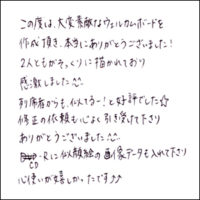 この度は、大変素敵なウェルカムボードを
作成頂き、本当にありがとうございました!
2人ともがそっくりに描かれており
感激しました
列席者からも、似てるー!と好評でした☆
修正の依頼も心よく引き受けて下さり
ありがとうございました
CD-Rに似顔絵の画像データも入れて下さり
心使いが嬉しかったです♪♪